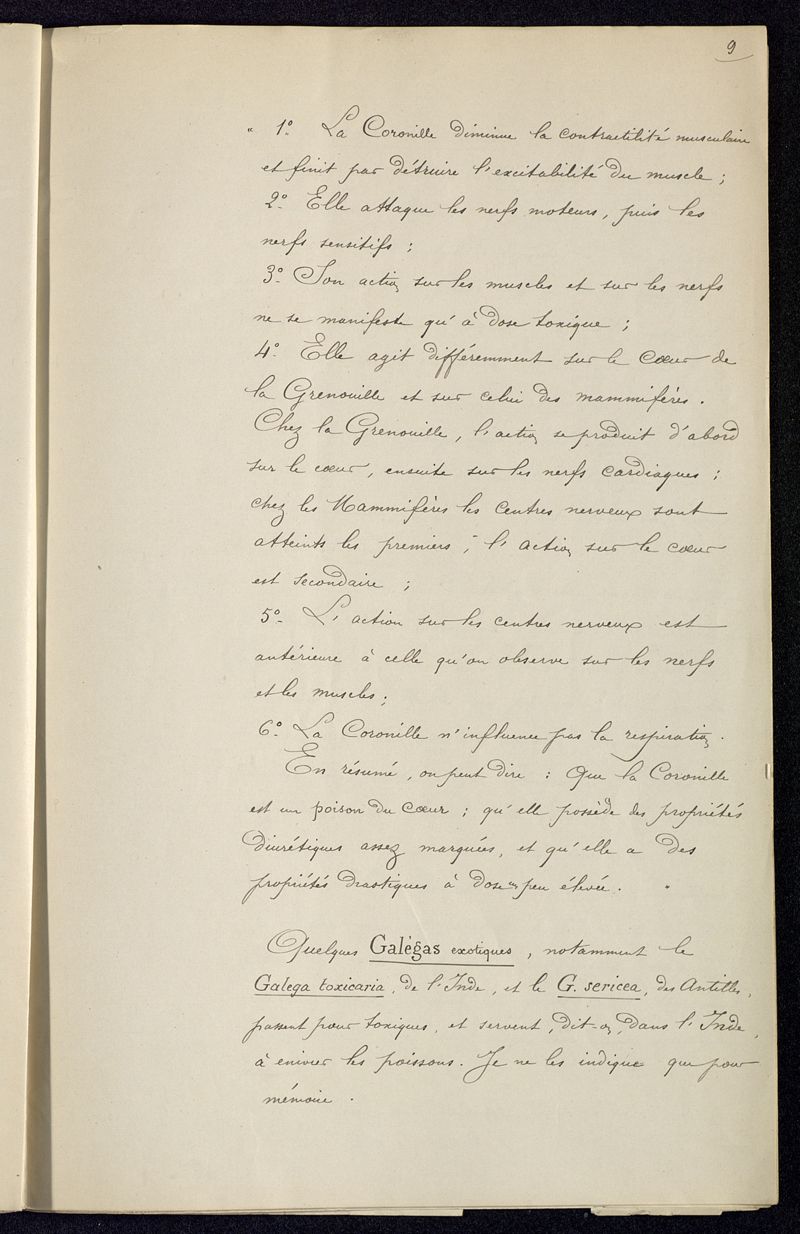 9
" 1º. La Coronille diminue la contractilité musculaire
et finit par détruire l'excitabilité du muscle ;
2º. Elle attaque les nerfs moteurs, puis les
nerfs sensitifs ;
3º. Son action sur les muscles et sur les nerfs
ne se manifeste qu'à dose toxique ;
4º. Elle agit différemment sur le Cœur de
la Grenouille et sur celui des mammifères.
Chez la Grenouille, l'action se produit d'abord
sur le cœur, ensuite sur les nerfs cardiaques ;
chez les Mammifères les centres nerveux sont
atteints les premiers ; l'action sur le cœur
est secondaire ;
5º. L'action sur les centres nerveux est
antérieure à celle qu'on observe sur les nerfs
et les muscles ;
6º. La Coronille n'influence pas la respiration.
En résumé, on peut dire : Que la Coronille
est un poison du cœur ; qu'elle possède des propriétés
diurétiques assez marquées, et qu'elle a des
propriétés drastiques à dose peu élevée. "
Quelques Galégas exotiques, notamment le
Galega toxicaria, de l'Inde, et le G. sericea, des Antilles,
passent pour toxiques, et servent, dit-on, dans l'Inde,
à enivrer les poissons. Je ne les indique que pour
mémoire.